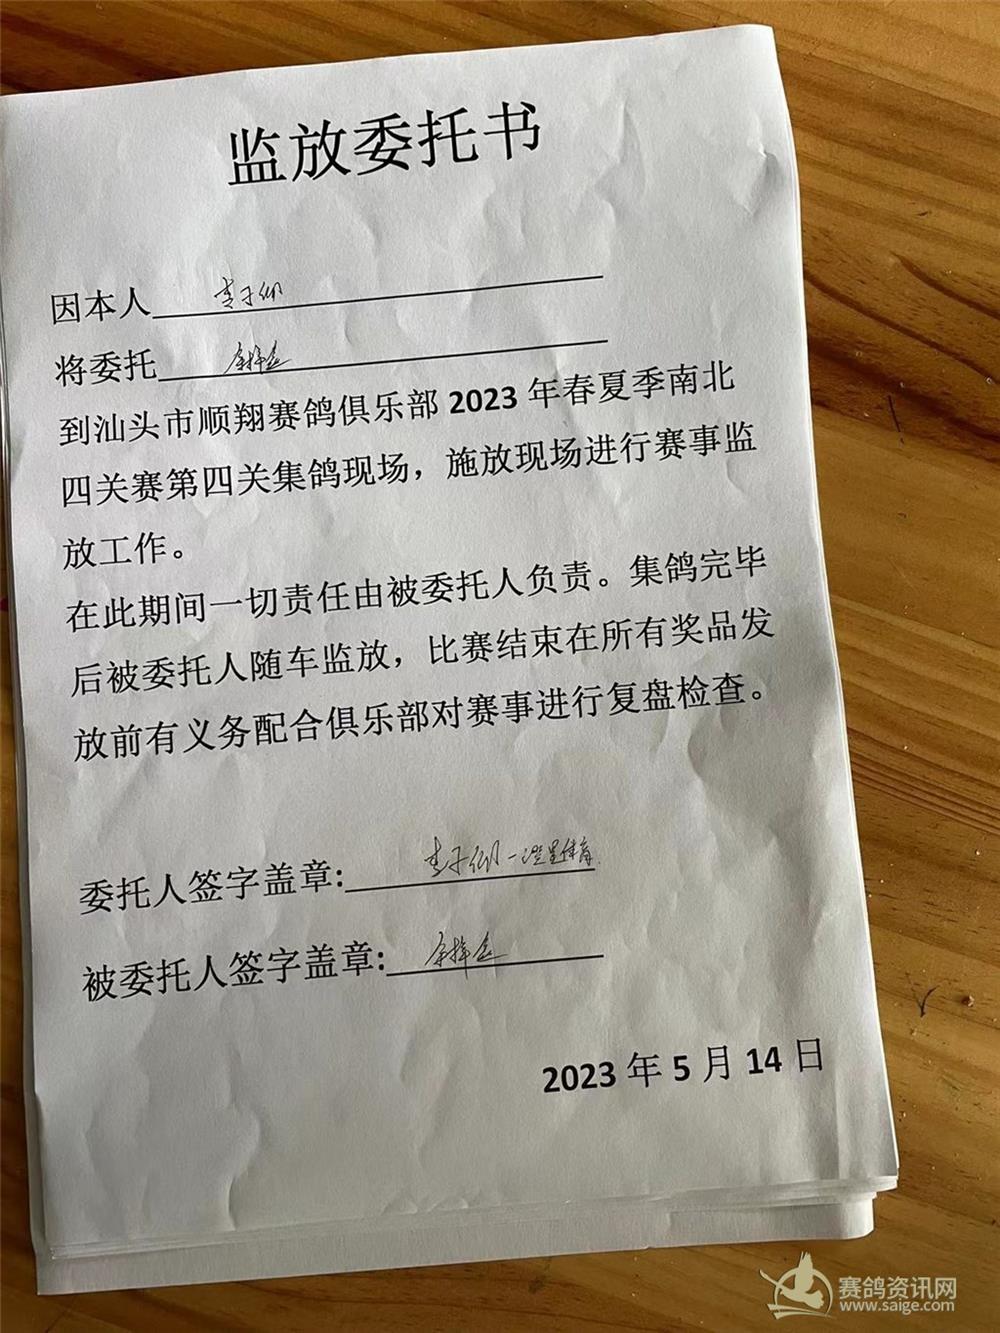 监放委托书
因本人 李子仰
将委托
到汕头市顺翔赛鸽俱乐部2023年春夏季南北
四关赛第四关集鸽现场，施放现场进行赛事监
放工作。
在此期间一切责任由被委托人负责。集鸽完毕
后被委托人随车监放，比赛结束在所有奖品发
放前有义务配合俱乐部对赛事进行复盘检查。
委托人签字盖章: 李子仰
被委托人签字盖章:
2023年5月14日
赛鸽资讯网
www.saige.com